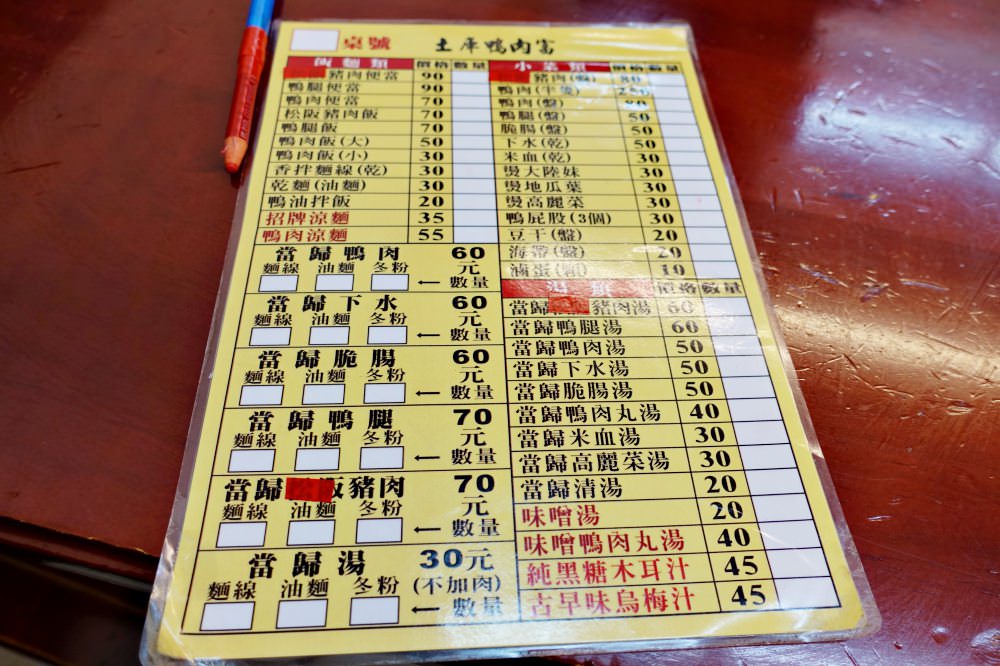 桌號 土庫鴨肉富
飯麵類 價格 數量
豬肉便當 90
鴨腿便當 90
鴨肉便當 70
松阪豬肉飯 70
鴨腿飯 70
鴨肉飯(大) 50
鴨肉飯(小) 30
香拌麵線(乾) 30
乾麵(油麵) 30
鴨油拌飯 20
招牌涼麵 35
鴨肉涼麵 55
當歸鴨肉 60元
麵線 油麵 冬粉 ←數量
當歸下水 60元
麵線 油麵 冬粉 ←數量
當歸脆腸 60元
麵線 油麵 冬粉 ←數量
當歸鴨腿 70元
麵線 油麵 冬粉 ←數量
當歸 阪豬肉 70元
麵線 油麵 冬粉 ←數量
當歸湯 30元
麵線 油麵 冬粉 (不加肉)
←數量
小菜類 價格 數量
豬肉(盤) 80
鴨肉(半隻)
鴨肉(盤)
鴨腿(盤) 50
脆腸(盤) 50
下水(乾) 50
米血(乾) 30
燙大陸妹 30
燙地瓜葉 30
燙高麗菜 30
鴨屁股(3個) 30
豆干(盤) 20
海帶(盤) 20
滷蛋 10
湯類 價格 數量
當歸 豬肉湯 60
當歸鴨腿湯 60
當歸鴨肉湯 50
當歸下水湯 50
當歸脆腸湯 50
當歸鴨肉丸湯 40
當歸米血湯 30
當歸高麗菜湯 30
當歸清湯 20
味噌湯 20
味噌鴨肉丸湯 40
純黑糖木耳汁 45
古早味烏梅汁 45